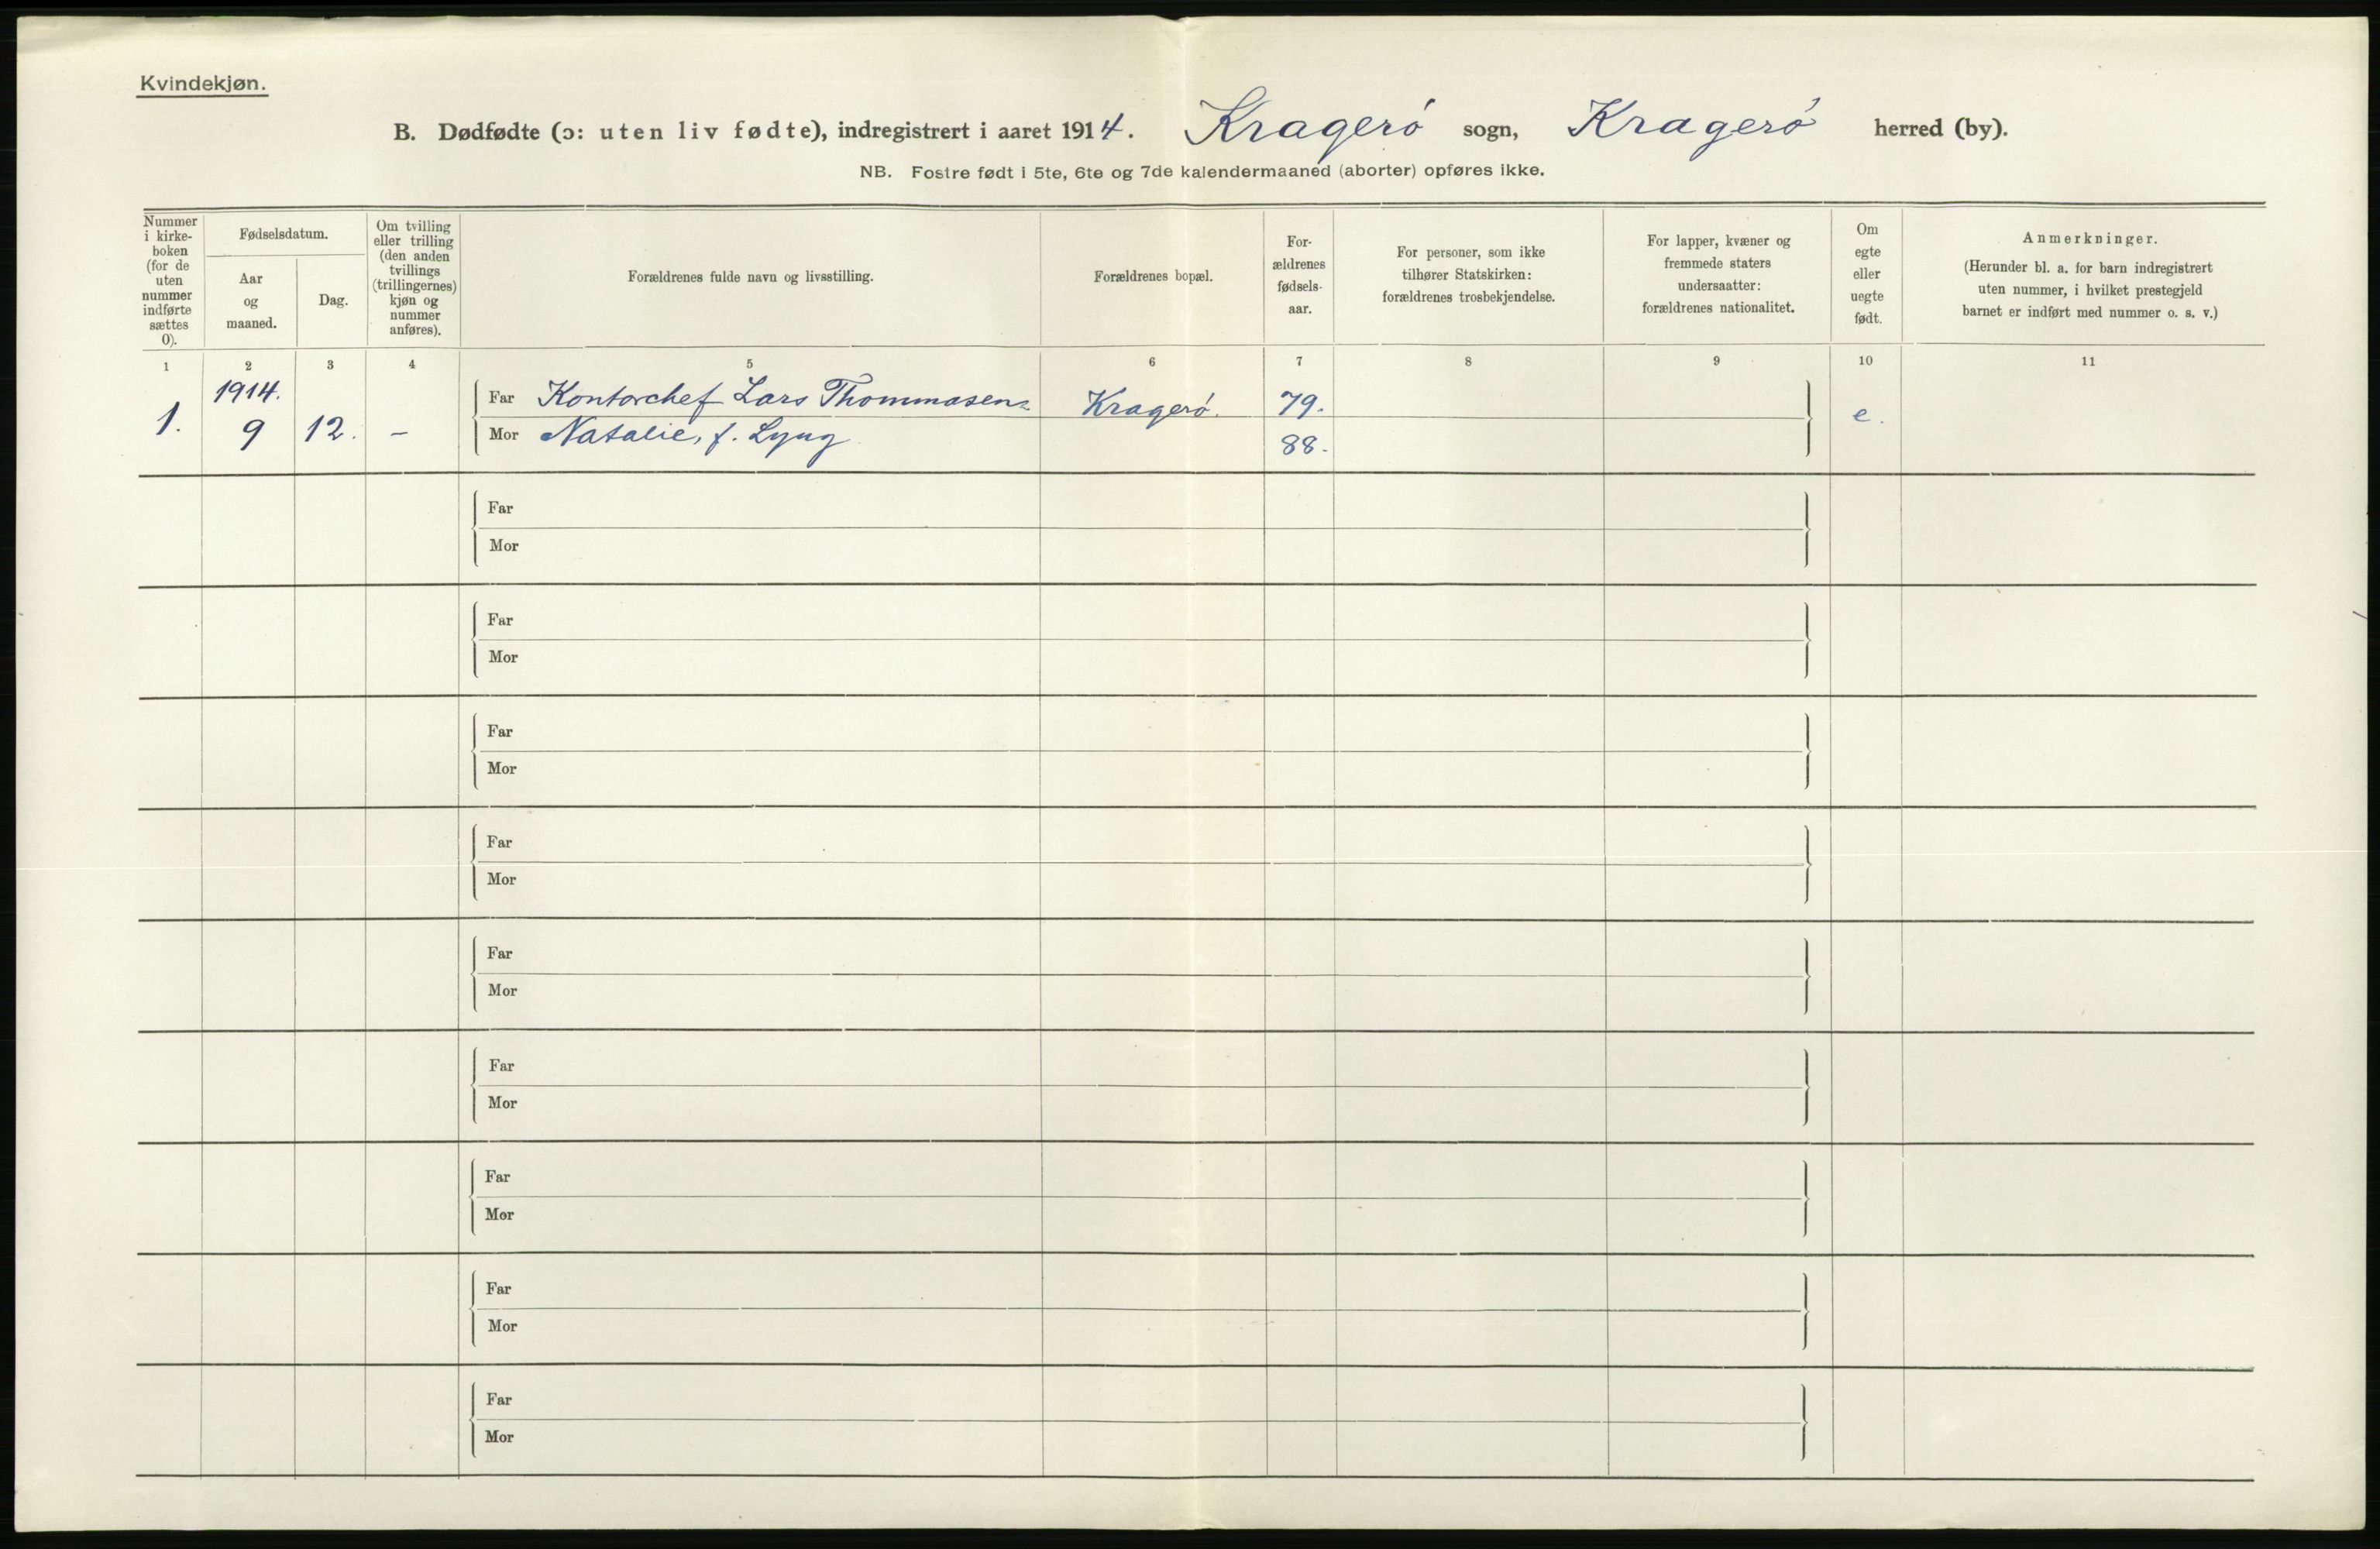 Kvindekjøn.
B. Dødfødte (ɔ: uten liv fødte), indregistrert i aaret 1914. Kragerø sogn, Kragerø herred (by).
NB. Fostre født i 5te, 6te og 7de kalendermaaned (aborter) opføres ikke.
Nummer
i kirke-
boken
(for de
uten
nummer
indførte
sættes
0).
Fødselsdatum.
Aar
og
maaned.
Dag.
Om tvilling
eller trilling
(den anden
tvillings
(trillingernes)
kjøn og
nummer
anføres).
Forældrenes fulde navn og livsstilling.
Forældrenes bopæl.
For-
ældrenes
fødsels-
aar.
For personer, som ikke
tilhører Statskirken:
forældrenes trosbekjendelse.
For lapper, kvæner og
fremmede staters
undersaatter:
forældrenes nationalitet.
Om
egte
eller
uegte
født.
Anmerkninger.
(Herunder bl. a. for barn indregistrert
uten nummer, i hvilket prestegjeld
barnet er indført med nummer o. s. v.)
1 2 3 4 5 6 7 8 9 10 11
1914.
1. 9 12. –
Far Kontorchef Lars Thommasen Kragerø. 79. e.
Mor Natalie, f. Lyng 88.
Far
Mor
Far
Mor
Far
Mor
Far
Mor
Far
Mor
Far
Mor
Far
Mor
Far
Mor
Far
Mor